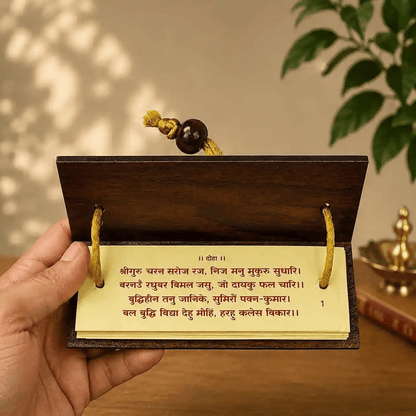 ।। दोहा ।।
श्रीगुरु चरन सरोज रज, निज मनु मुकुरु सुधारि।
बरनउँ रघुबर बिमल जसु, जो दायकु फल चारि।।
बुद्धिहीन तनु जानिके, सुमिरों पवन-कुमार।
बल बुद्धि विद्या देहु मोहिं, हरहु कलेस विकार।।
1